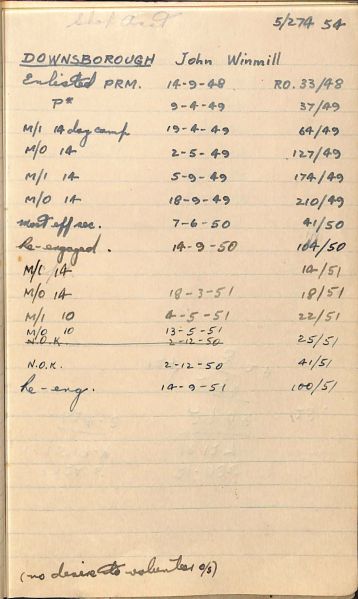 Shop Asst 5/274 54
DOWNSBOROUGH John Winmill
Enlisted PRM. 14-9-48 RO. 33/48
P* 9-4-49 37/49
M/I 14 day camp 19-4-49 64/49
M/O 14 2-5-49 127/49
M/I 14 5-9-49 174/49
M/O 14 18-9-49 210/49
most eff rec. 7-6-50 41/50
Re-engaged. 14-9-50 104/50
M/I 14 14/51
M/O 14 18-3-51 18/51
M/I 10 4-5-51 22/51
M/O 10 13-5-51
N.O.K. 2-12-50 25/51
N.O.K. 2-12-50 41/51
Re-eng. 14-9-51 100/51
(no desire to volunteer o/s)